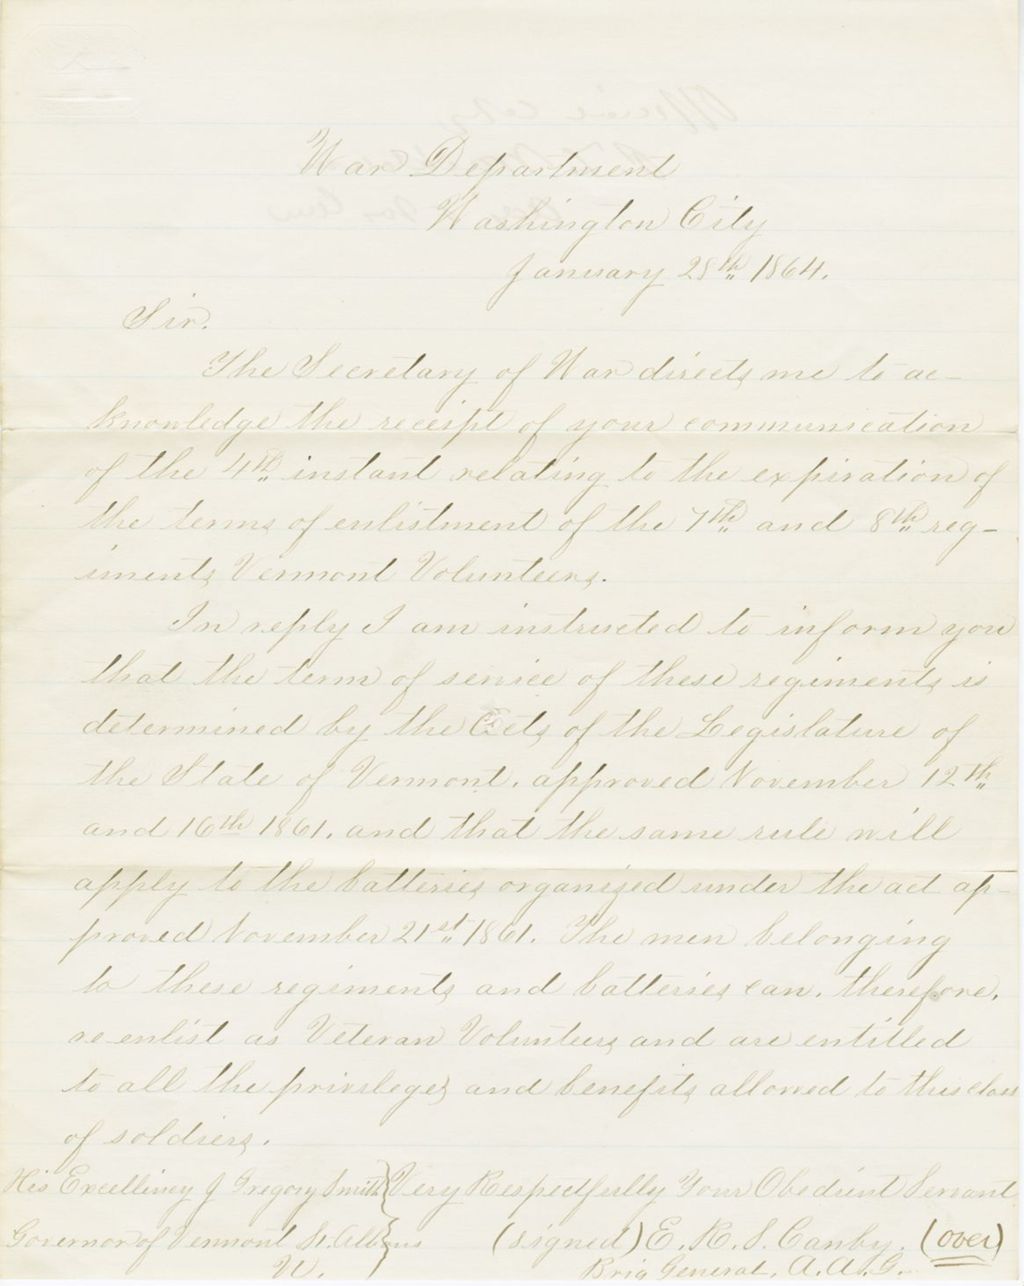 War Department
Washington City
January 28th 1864.
Sir.
The Secretary of War directs me to ac-
knowledge the receipt of your communication
of the 4th instant relating to the expiration of
the terms of enlistment of the 7th and 8th reg-
iments Vermont Volunteers.
In reply I am instructed to inform you
that the term of service of these regiments is
determined by the Acts of the Legislature of
the State of Vermont, approved November 12th
and 16th 1861, and that the same rule will
apply to the batteries organized under the act ap-
proved November 21st 1861. The men belonging
to these regiments and batteries can, therefore,
re enlist as Veteran Volunteers and are entitled
to all the privileges and benefits allowed to this class
of soldiers.
His Excellency J Gregory Smith } Very Respectfully Your Obedient Servant
Governor of Vermont St. Albans (signed) E. R. S. Canby. (over)
Vt. Brig General, A.A.G.